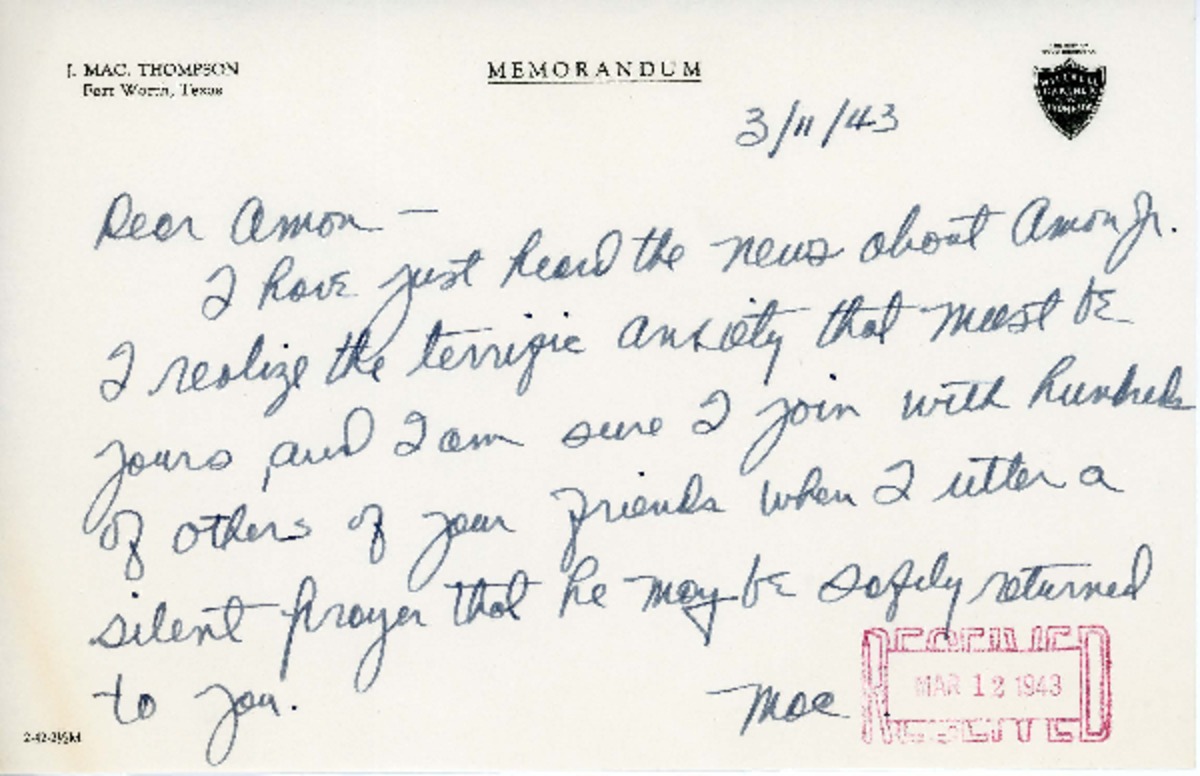 J. MAC. THOMPSON
Fort Worth, Texas
MEMORANDUM
3/11/43
Dear Amon —
I have just heard the news about Amon Jr.
I realize the terrific anxiety that must be
yours, and I am sure I join with hundreds
of others of your friends when I utter a
silent prayer that he may be safely returned
to you.
Mac
RECEIVED
MAR 12 1943